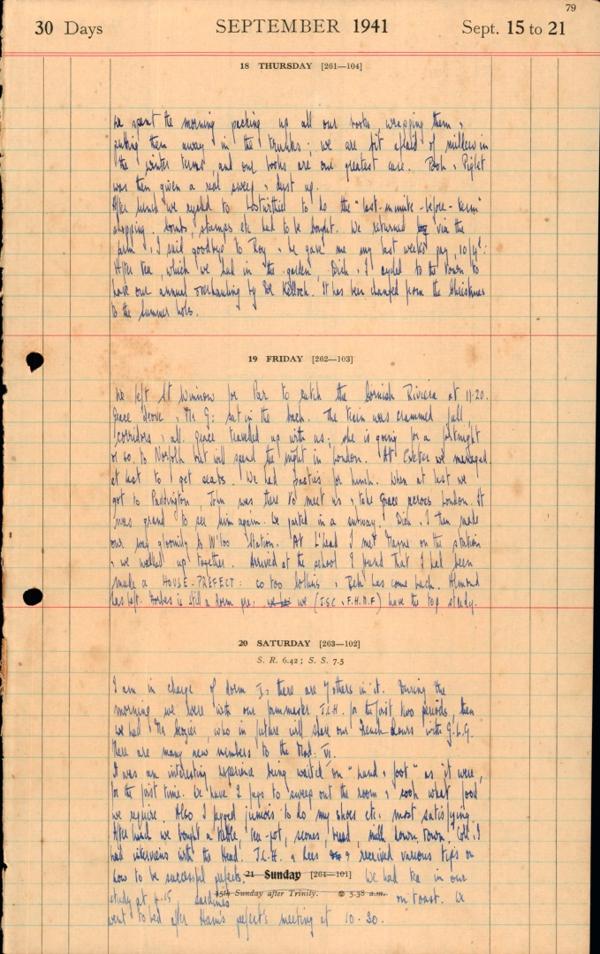 79
30 Days SEPTEMBER 1941 Sept. 15 to 21
18 THURSDAY [261—104]
We spent the morning packing up all our books wrapping them &
putting them away in the trunks; we are a bit afraid of mildew in
the winter terms, and our books are our greatest care. Pooh & Piglet
was then given a real sweep & dust up.
After lunch we cycled to Lostwithiel to do the "last-minute-before-term"
shopping. stamps etc had to be bought. We returned via the
farm & I said goodbye to Roy & he gave me my last week's pay,
After tea, which we had in the garden, Dick & I cycled to the Town to
have our annual overhauling by Dr Kellock. It has been changed from the Christmas
to the Summer hols.
19 FRIDAY [262—103]
We left St Winnow for Par to catch the Cornish Riviera at 11.20.
Grace drove, & Mr G: sat in the back. The train was crammed full,
corridors & all. Grace travelled up with us; she is going for a fortnight
or so to Norfolk but will spend the night in London. At Exeter we managed
at last to get seats. We had Pasties for lunch. When at last we
got to Paddington, Tom was there to meet us & take Grace across London. It
was grand to see him again. We parted in a subway. Dick & I then made
our way gloomily to W'loo Station. At L'head I met Mayne on the station
& we walked up together. Arrived at the school I found that I had been
made a HOUSE-PREFECT: so too & has come back. Almond
has left. Forbes is still a dorm pre: we (J.S.C. & F.H.D.F) have the top study.
20 SATURDAY [263—102]
S. R. 6.42; S. S. 7.5
I am in charge of dorm there are 7 others in it. During the
morning we were with our formmaster J.L.H. for the first two periods, then
we had Mr who in future will share our French hours with G.L.G.
There are many new members to the Mod. VI.
It was an interesting experience being waited on "hand & foot" as it were,
for the first time. We have 2 fags to sweep out the room & cook what food
we require. Also I fagged juniors to do my shoes etc. most satisfying.
After lunch we bought a kettle, tea-pot, scones, bread, milk down town. I
had interviews with the Head. J.L.H. & received various tips on
how to be successful prefects. 21 Sunday [264—101] We had tea in our
study at 4.15 sardines 15th Sunday after Trinity. 5.38 a.m. on toast. We
went to bed after prefects meeting at 10.30.